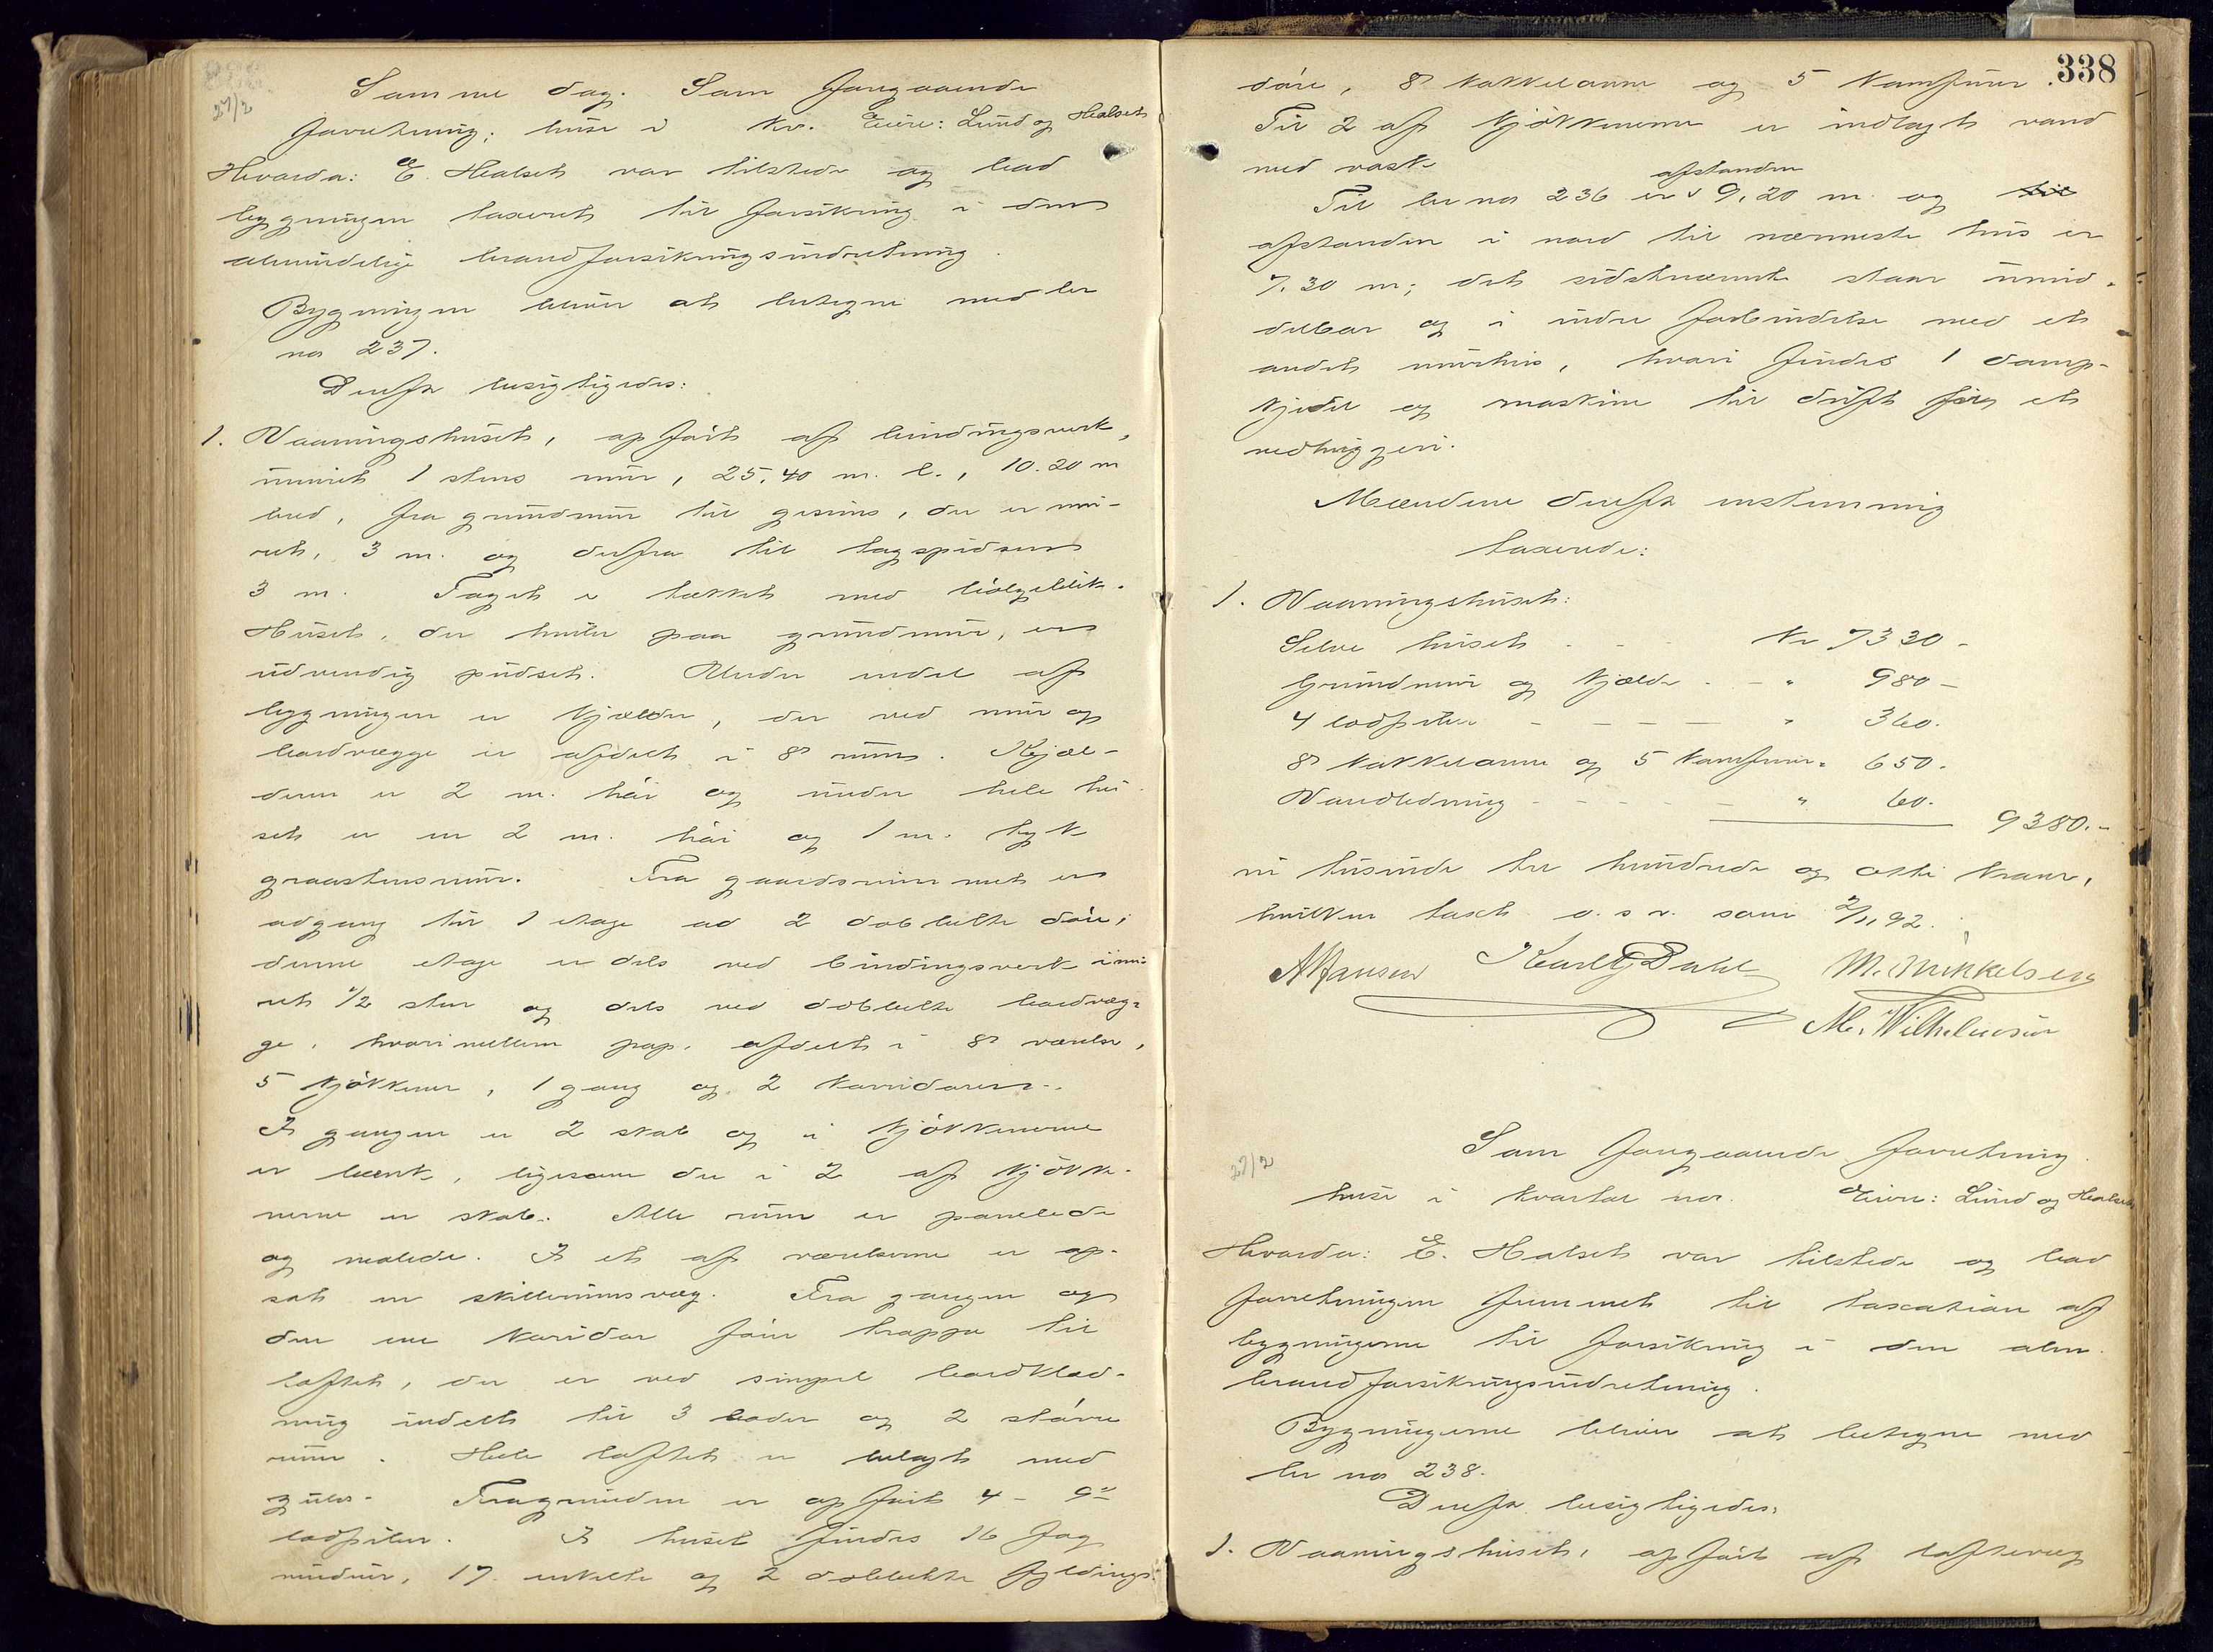 27/2
Samme dag. Som foregaaende
forretning; huse i kv. Eiere: Lund og Halseth
Hvorda: E. Halseth var tilstede og bad
bygningen taxeret til forsikring i den
almindelige brandforsikringsindretning.
Bygningen bliver at betegne med br
no 237.
Derefter besigtigedes:
1. Vaaningshuset, opført af bindingsverk,
imuret 1 stens mur, 25.40 m. l., 10.20 m
bred, fra grundmur til gesims, der er mu-
ret, 3 m. og derfra til tagspidsen
3 m. Taget er tækket med bølgeblik.
Huset, der hviler paa grundmur, er
udvendig pudset. Under endel af
bygningen er kjælder, der ved mur og
bordvægge er afdelt i 8 rum. Kjæl-
deren er 2 m. høi og under hele hu-
set er en 2 m. høi og 1 m. tyk
graastensmur. Fra gaardsrummet er
adgang til 1 etage ad 2 dobbelte døre;
denne etage er dels ved bindingsverk imu-
ret 1/2 sten og dels ved dobbelte bordvæg-
ge, hvorimellem pap, afdelt i 8 værelser,
5 kjøkkener, 1 gang og 2 korridorer.
I gangen er 2 skab og i kjøkkenerne
er bænk, ligesom der i 2 af kjøkke-
nerne er skab. Alle rum er panelede
og malede. I et af værelserne er op-
sat en skillerumsvæg. Fra gangen og
den ene koridor fører trappe til
loftet, der er ved simpel bordklæd-
ning inddelt til 3 boder og 2 større
rum. Hele loftet er belagt med
gulv. Fra grunden er opført 4 - 9"
lodpiber. I huset findes 16 fag
vinduer, 17 enkelte og 2 dobbelte fyldings-
338
døre, 8 kakkelovne og 5 komfurer.
Til 2 af kjøkkenerne er indlagt vand
med vask.
Til br no 236 er afstanden 9,20 m. og til
afstanden i nord til nærmeste hus er
7.30 m; det sidstnævnte staar umid-
delbar og i indre forbindelse med et
andet murhus, hvori findes 1 damp-
kjedel og maskine til drift for et
vedhuggeri.
Mændene derefter enstemmig
taxerede:
1. Vaaningshuset:
Selve huset - - Kr 7330 -
Grundmur og kjælder - - " 980 -
4 lodpiber - - - - " 360.
8 kakkelovne og 5 komfurer " 650.
Vandledning - - - - " 60.
9380.-
ni tusinde tre hundrede og otti kroner,
hvilken taxt o. s. v. som 2/11 92.
A Hansen Karl G Dahl M. Mikkelsen
M. Wilhelmsen
27/2
Som foregaaende forretning.
huse i kvartal no. Eiere: Lund og Halseth
Hvorda: E. Halseth var tilstede og bad
forretningen fremmet til taxation af
bygningerne til forsikring i den alm.
brandforsikringsindretning.
Bygningerne bliver at betegne med
br no 238.
Derefter besigtigedes:
1. Vaaningshuset, opført af laftevæg